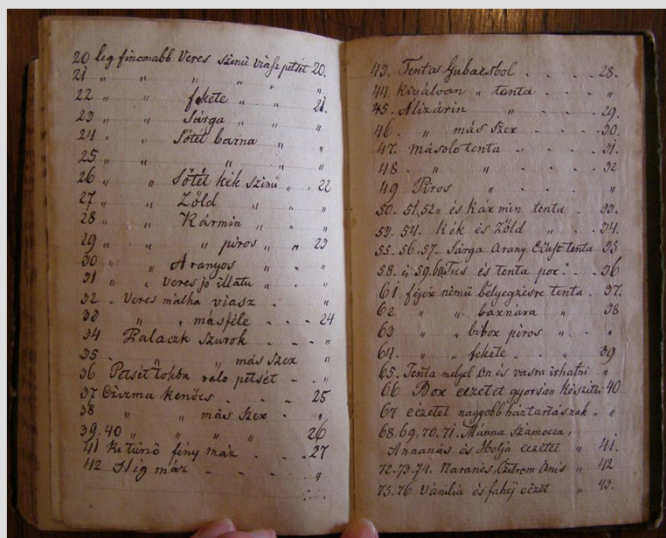 20 leg finomabb Veres szinü viasz petsét 20.
21 " " " " "
22 " " fekete " " 21.
23 " " Sárga " " "
24 " " Sötét barna " "
25 " " " " "
26 " " Sötét kék szinü " . 22
27 " " Zöld " " "
28 " " Kármin " " "
29 " " " piros " " 23
30 " " Aranyos " " "
31 " " Veres jó illatu " . "
32 - Veres viasz - "
33 " " , másféle - - - 24
34 Palaczk Szurok - - - "
35 - " más szer "
36 Petsét tokba való petsét - . "
37 Csizma kenöcs - - - 25
38 " " más szer - "
39, 40 " " " " 26
41 Kitünö fény máz - - - 27
42 Hig máz - - - "
43. Tentas Gubacsbol - - - - 28.
44. Kiválóan " tenta - - - "
45. Alizárin " - - - 29.
46. " más szer - - - 30.
47. másoló tenta - - - 31.
48 . " " - - - 32
49. Piros " - - - "
50. 51, 52 " és Kármin tenta . 33.
53. 54. Kék és Zöld " - 34.
55. 56. 57. Sárga Arany Ezüst tenta 35
58. és 59. 60. Tus és tenta por: - 36
61. fejér némü bélyegzésre tenta . 37.
62 " " barnára " 38
63 " " bibor piros " - "
64. " " fekete . - " 39
65. Tenta melyel Ón és vasra irhatni "
66 Bor eczetet gyorsan készitni 40
67 eczetet nagyobb háztartásnak - "
68. 69. 70. 71. Málnna Szamocza,
Annanás és Ibolja eczetet " 41.
72. 73. 74. Narancs, Czitrom Ánis " 42
75. 76 Vanilia és fahéj eczet " 43.